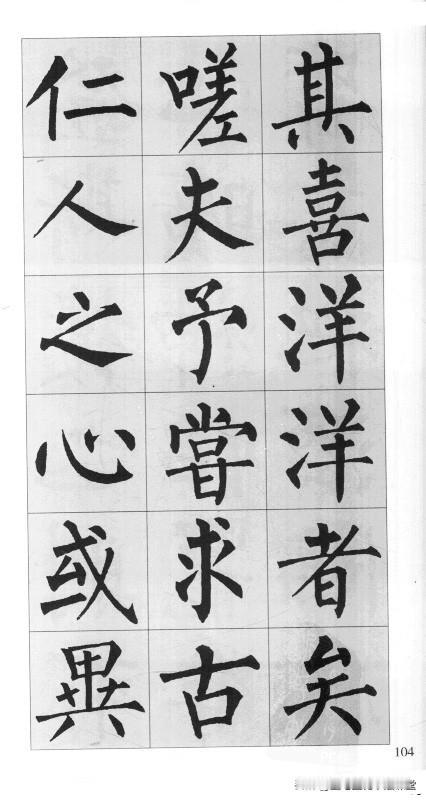 其喜洋洋者矣
嗟夫予嘗求古
仁人之心或異
104